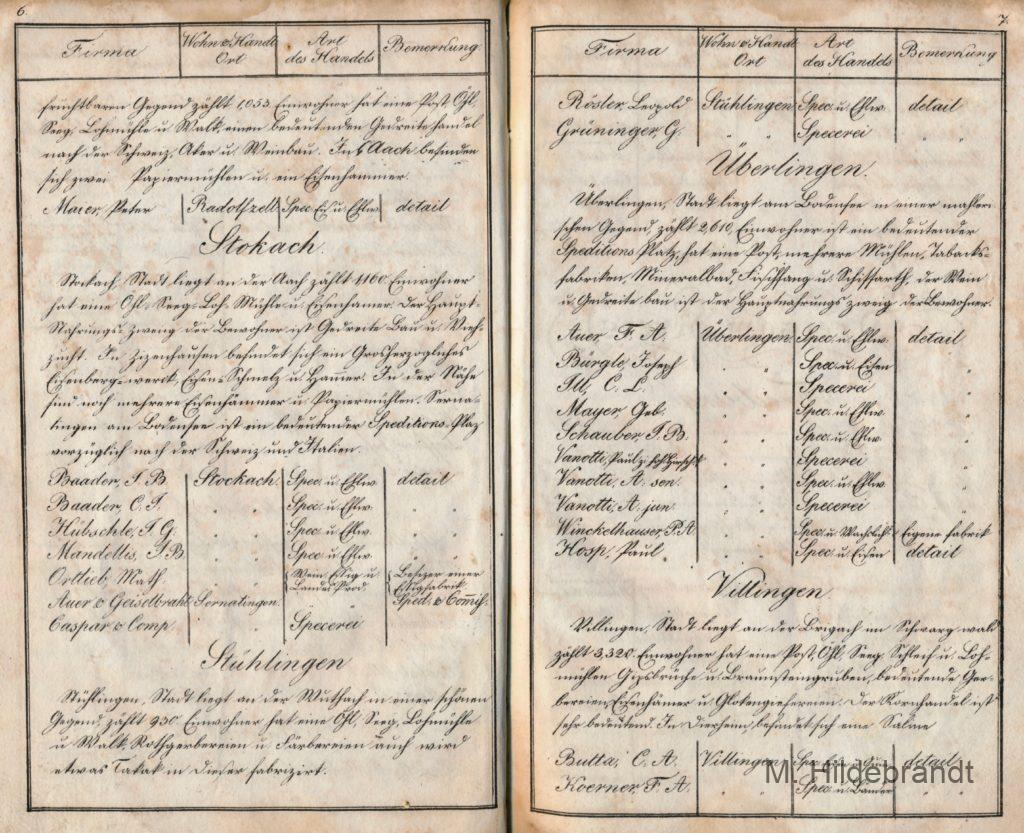 6.
Firma Wohn & Handl. Ort Art des Handels Bemerkung
fruchtbaren Gegend zählt 1,053 Einwohner hat eine Post, Öhl,
Seeg, Lohmühle u. Walk, einen bedeutenden Gedreite handel
nach der Schweiz, Aker u. Weinbau. In Aach befinden
sich zwei Papiermühlen u. ein Eisenhammer.
Maier, Peter Radolfzell Spec. Eis. u. Ehlw. detail
Stokach.
Stockach, Stadt liegt an der Aach zählt 1160 Einwohner
hat eine Öhl- Seeg- Loh Mühle u. Eisenhamer. Der Haupt-
Nahrungs-zweug der Bewohner ist Gedreite Bau u. Vieh-
zucht. In Zizenhausen befindet sich ein Grosherzogliches
Eisenberg-werck, Eisen-Schmelz u. Hamer. In der Nähe
sind noch mehrere Eisenhämmer u. Papiermühlen. Serna-
tingen am Bodensee ist ein bedeutender Speditions-Plaz
vorzüglich nach der Schweiz und Italien.
Baader, J. B. Stockach. Spec. u. Ehlw. detail
Baader, C. J. " " Spec. u. Ehlw. "
Hübschle, J. G. " " Spec. u. Ehlw. "
Mandellis, J. B. " " Spec. u. Ehlw. "
Ortlieb, Math. " " Wein Essig u. Landes Prod. Besizer einer Essigfabrik
Auer & Geiselbraht Sernatingen. Sped. & Comiß.
Caspar & Comp. " Specerei
Stühlingen
Stühlingen, Stadt liegt an der Wuthach in einer schönen
Gegend, zählt 930 Einwohner hat eine Öhl, Seeg, Lohmühle
u. Walk, Rothgerbereien u. Färbereien auch wird
etwas Tabak in dieser fabrizirt.
7.
Firma Wohn & Handl. Ort Art des Handels Bemerkung
Rösler, Leopold Stühlingen Spec. u. Ehlw. detail
Grüninger, G. " " Specerei "
Überlingen.
Überlingen, Stadt liegt am Bodensee in einer mahleri-
schen Gegend, zählt 2,610 Einwohner ist ein bedeutender
Speditions Platz, hat eine Post, mehrere Mühlen, Tabacks-
fabriken, Mineralbad, Fischfang u. Schiffarth, der Wein
u. Gedreite bau ist der Hauptnahrungs zweig der Bewohner.
Auer F. A. Überlingen Spec. u. Ehlw. detail
Bürgle, Joseph " " Spec. u. Eisen "
Itt, C. L. " " Specerei "
Mayer, Geb. " " Spec. u. Ehlw. "
Schauber, J. B. " " Spec. u. Ehlw. "
Vanotti, Paul " " Specerei "
Vanotti, A. sen. " " Spec. u. Ehlw. "
Vanotti, A. jun. " " Specerei "
Winckelhauser, P. A. " " Spec. u. Wachslicht. Eigene fabrik
Hosp, Paul " " Spec. u. Eisen detail
Villingen.
Villingen, Stadt liegt an der Brigach im Schwarzwald
zählt 3,320 Einwohner hat eine Post, Öhl, Seeg, Schleif u. Loh-
mühlen Gipsbrüche u. Braunsteingruben, bedeutende Ger-
bereien, Eisenhämer u. Glokengiesereien. Der Kornhandel ist
sehr bedeutend. In Dierheim, befindet sich eine Saline
Butta, C. A. Villingen Spec. detail
Koerner F. A. " " Spec. u. Bänder "
M. Hildebrandt